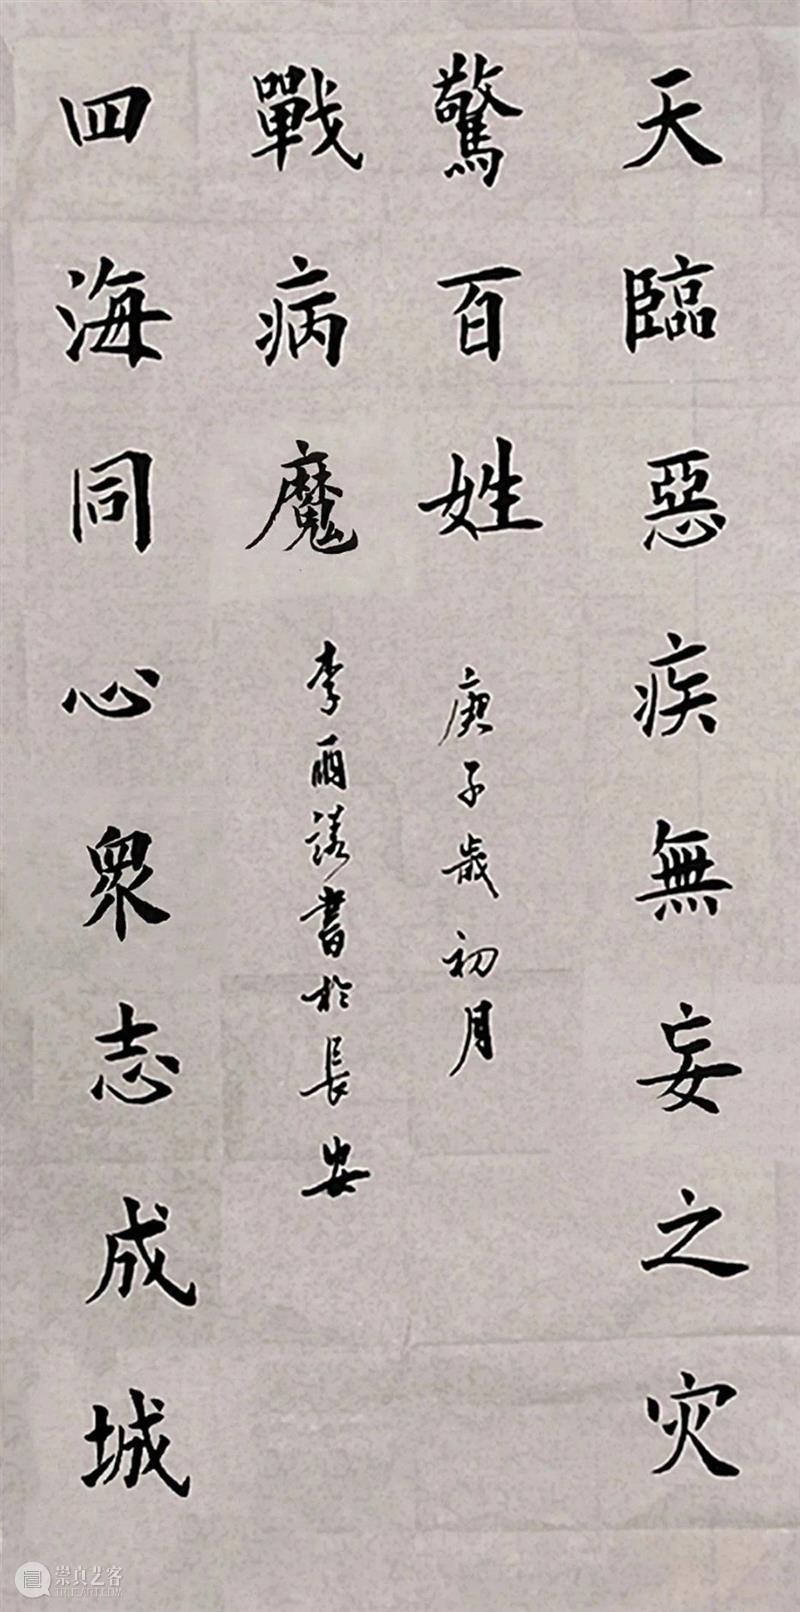 天臨惡疾無妄之灾
驚百姓
庚子歲初月
四海同心眾志成城
戰病魔
李書於長安
崇真艺客
TRUEART.COM